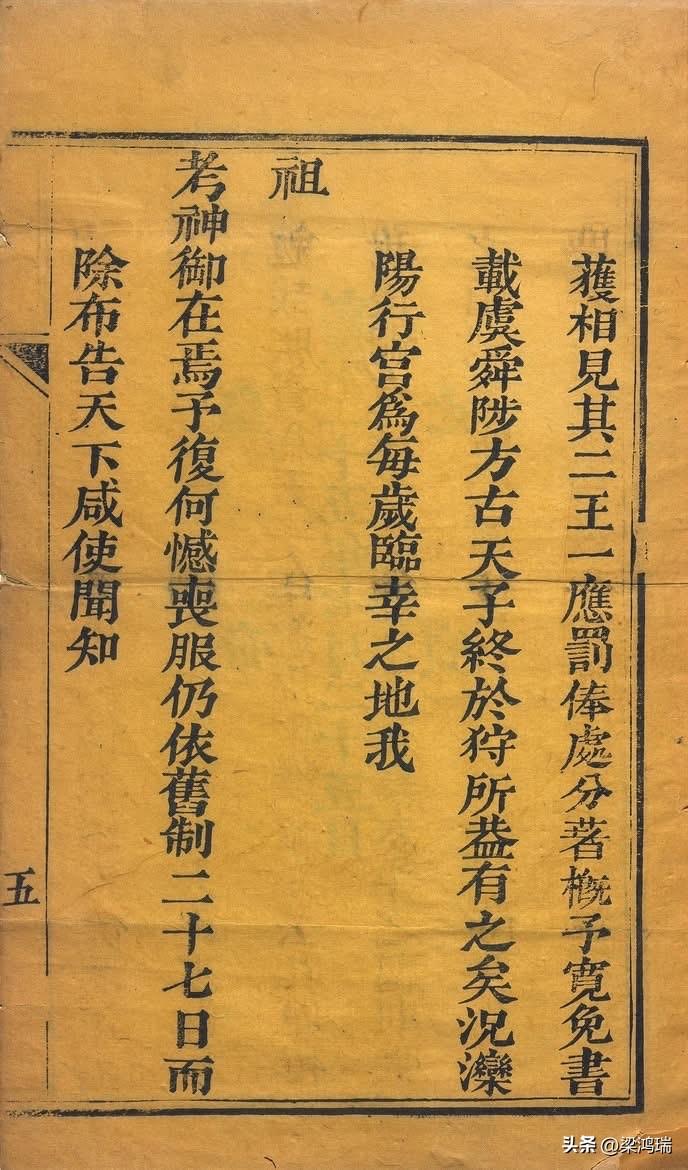 獲相見其二王一應罰俸處分著概予寬免書
載虞舜陟方古天子終於狩所葢有之矣況灤
陽行宮爲每歲臨幸之地我
祖
考神御在焉予復何憾喪服仍依舊制二十七日而
除布告天下咸使聞知
五
头条 @梁鸿瑞